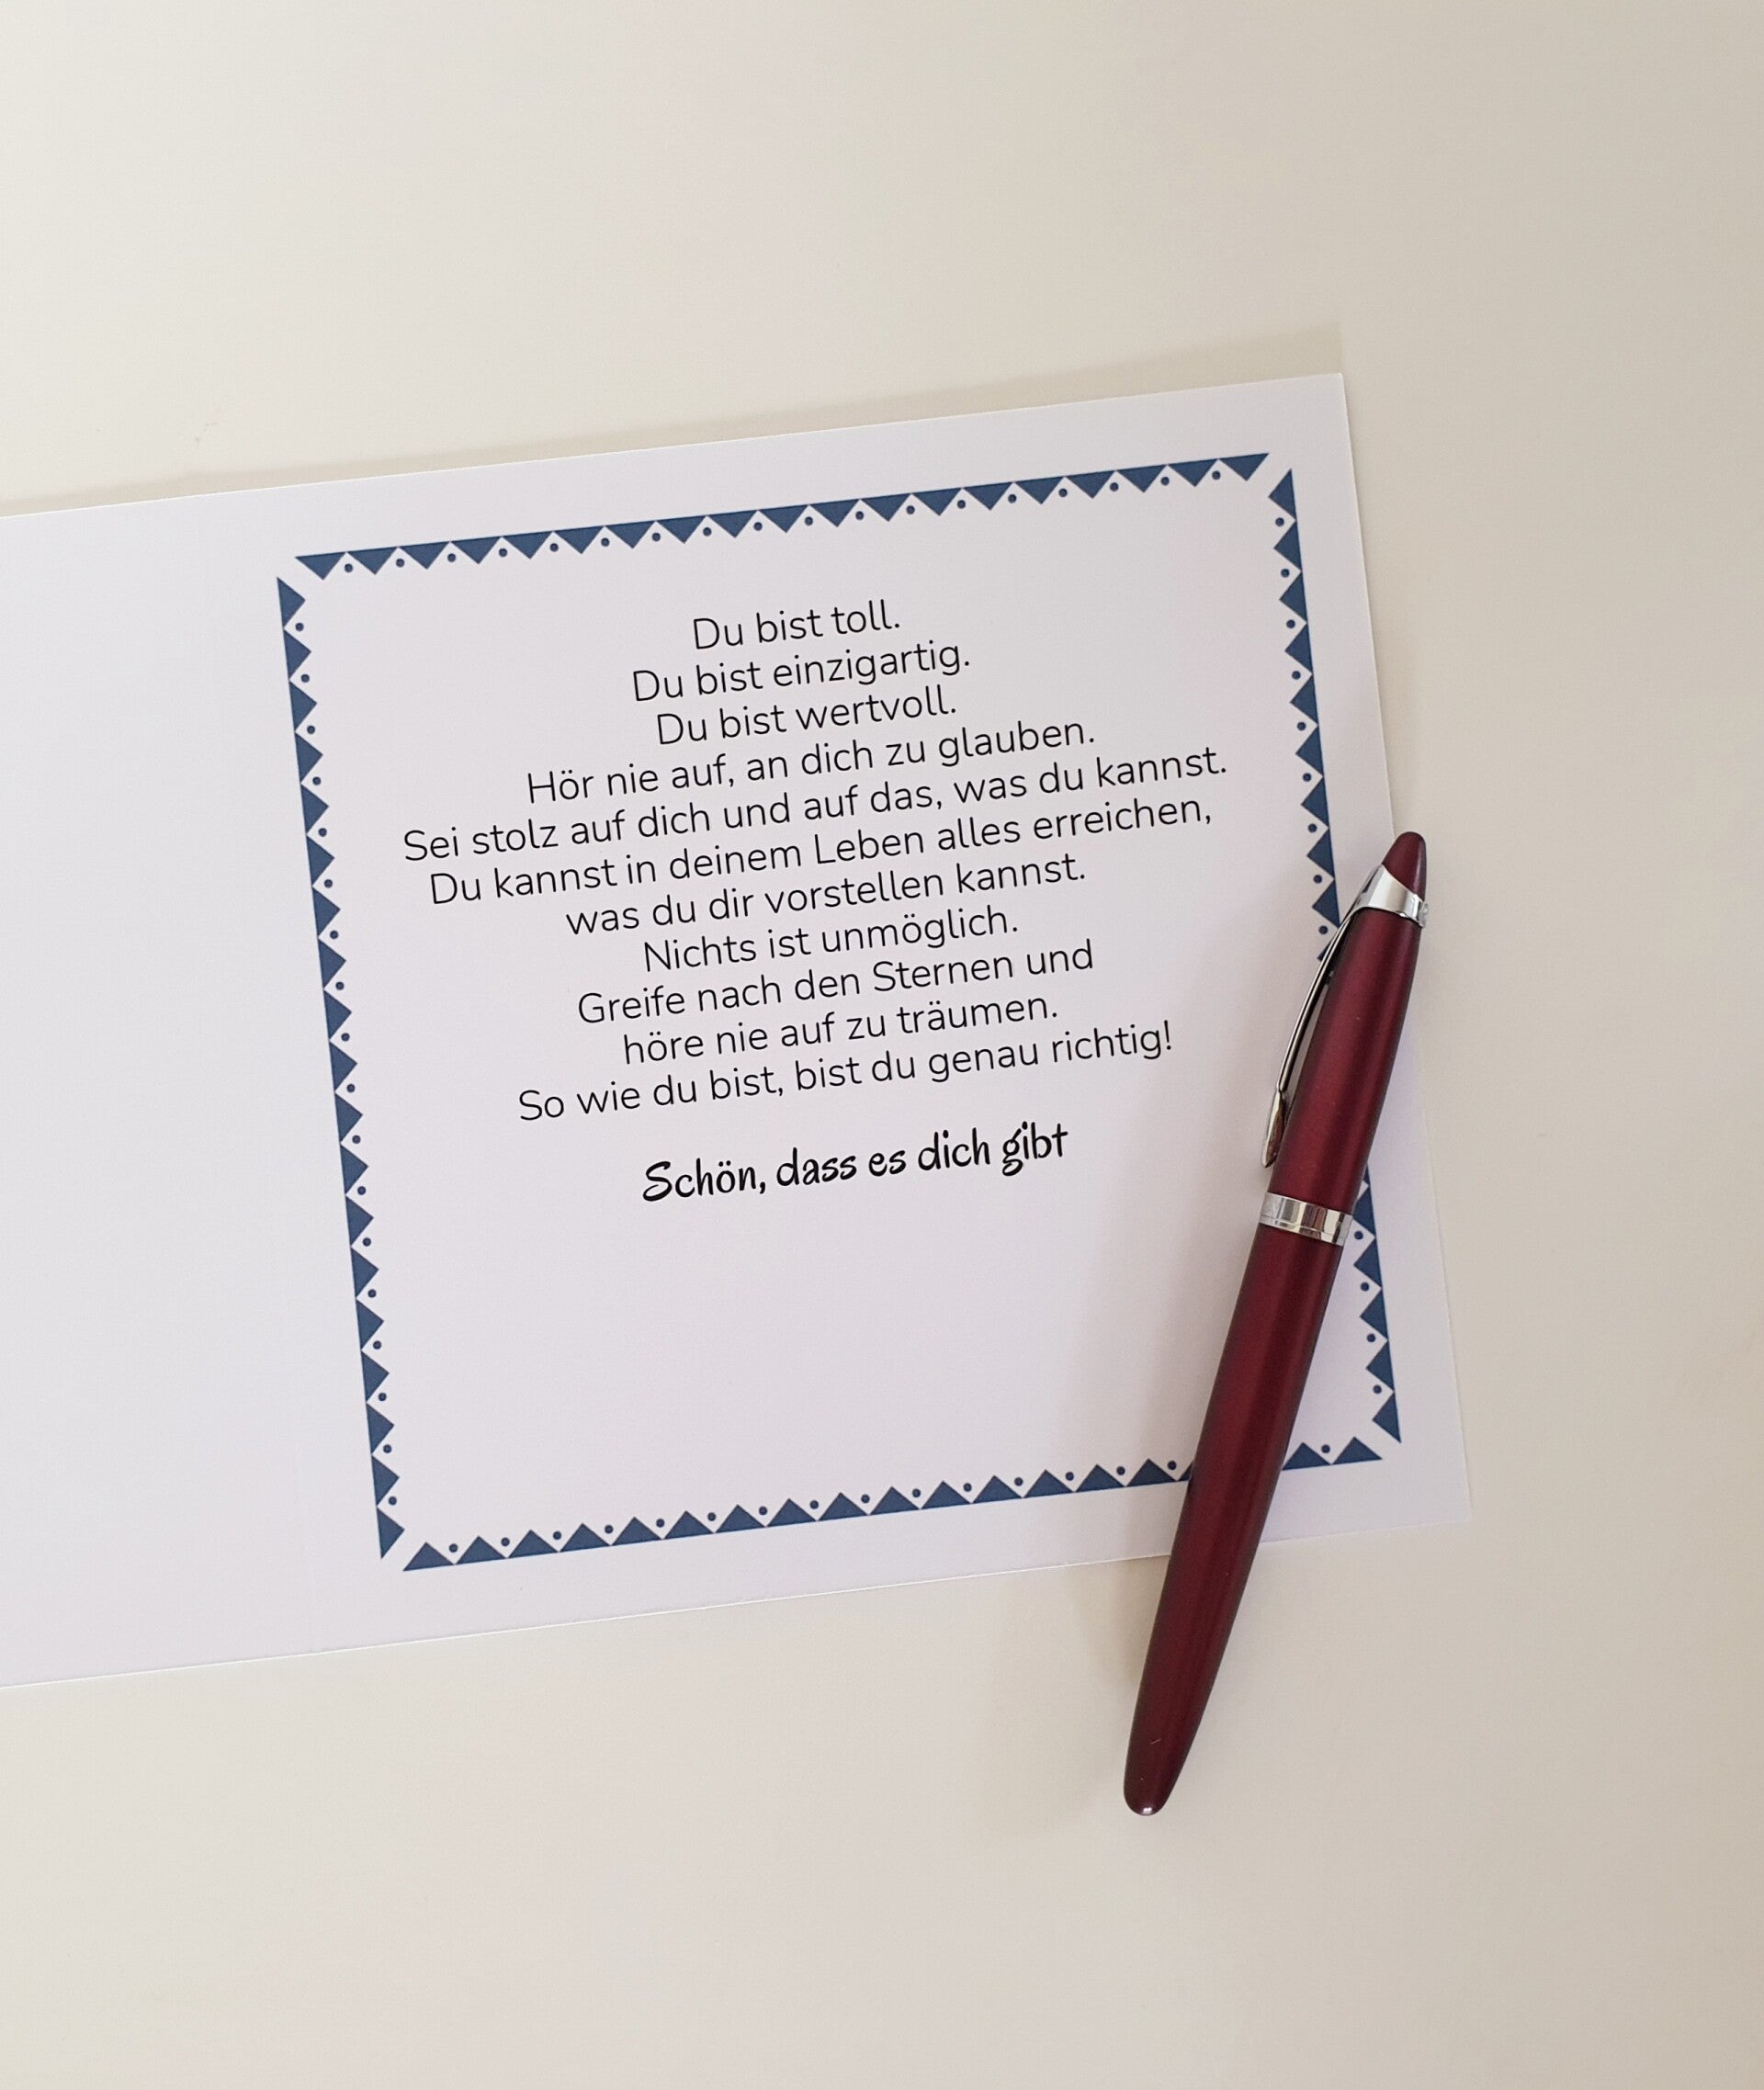 Du bist toll.
Du bist einzigartig.
Du bist wertvoll.
Hör nie auf, an dich zu glauben.
Sei stolz auf dich und auf das, was du kannst.
Du kannst in deinem Leben alles erreichen,
was du dir vorstellen kannst.
Nichts ist unmöglich.
Greife nach den Sternen und
höre nie auf zu träumen.
So wie du bist, bist du genau richtig!
Schön, dass es dich gibt